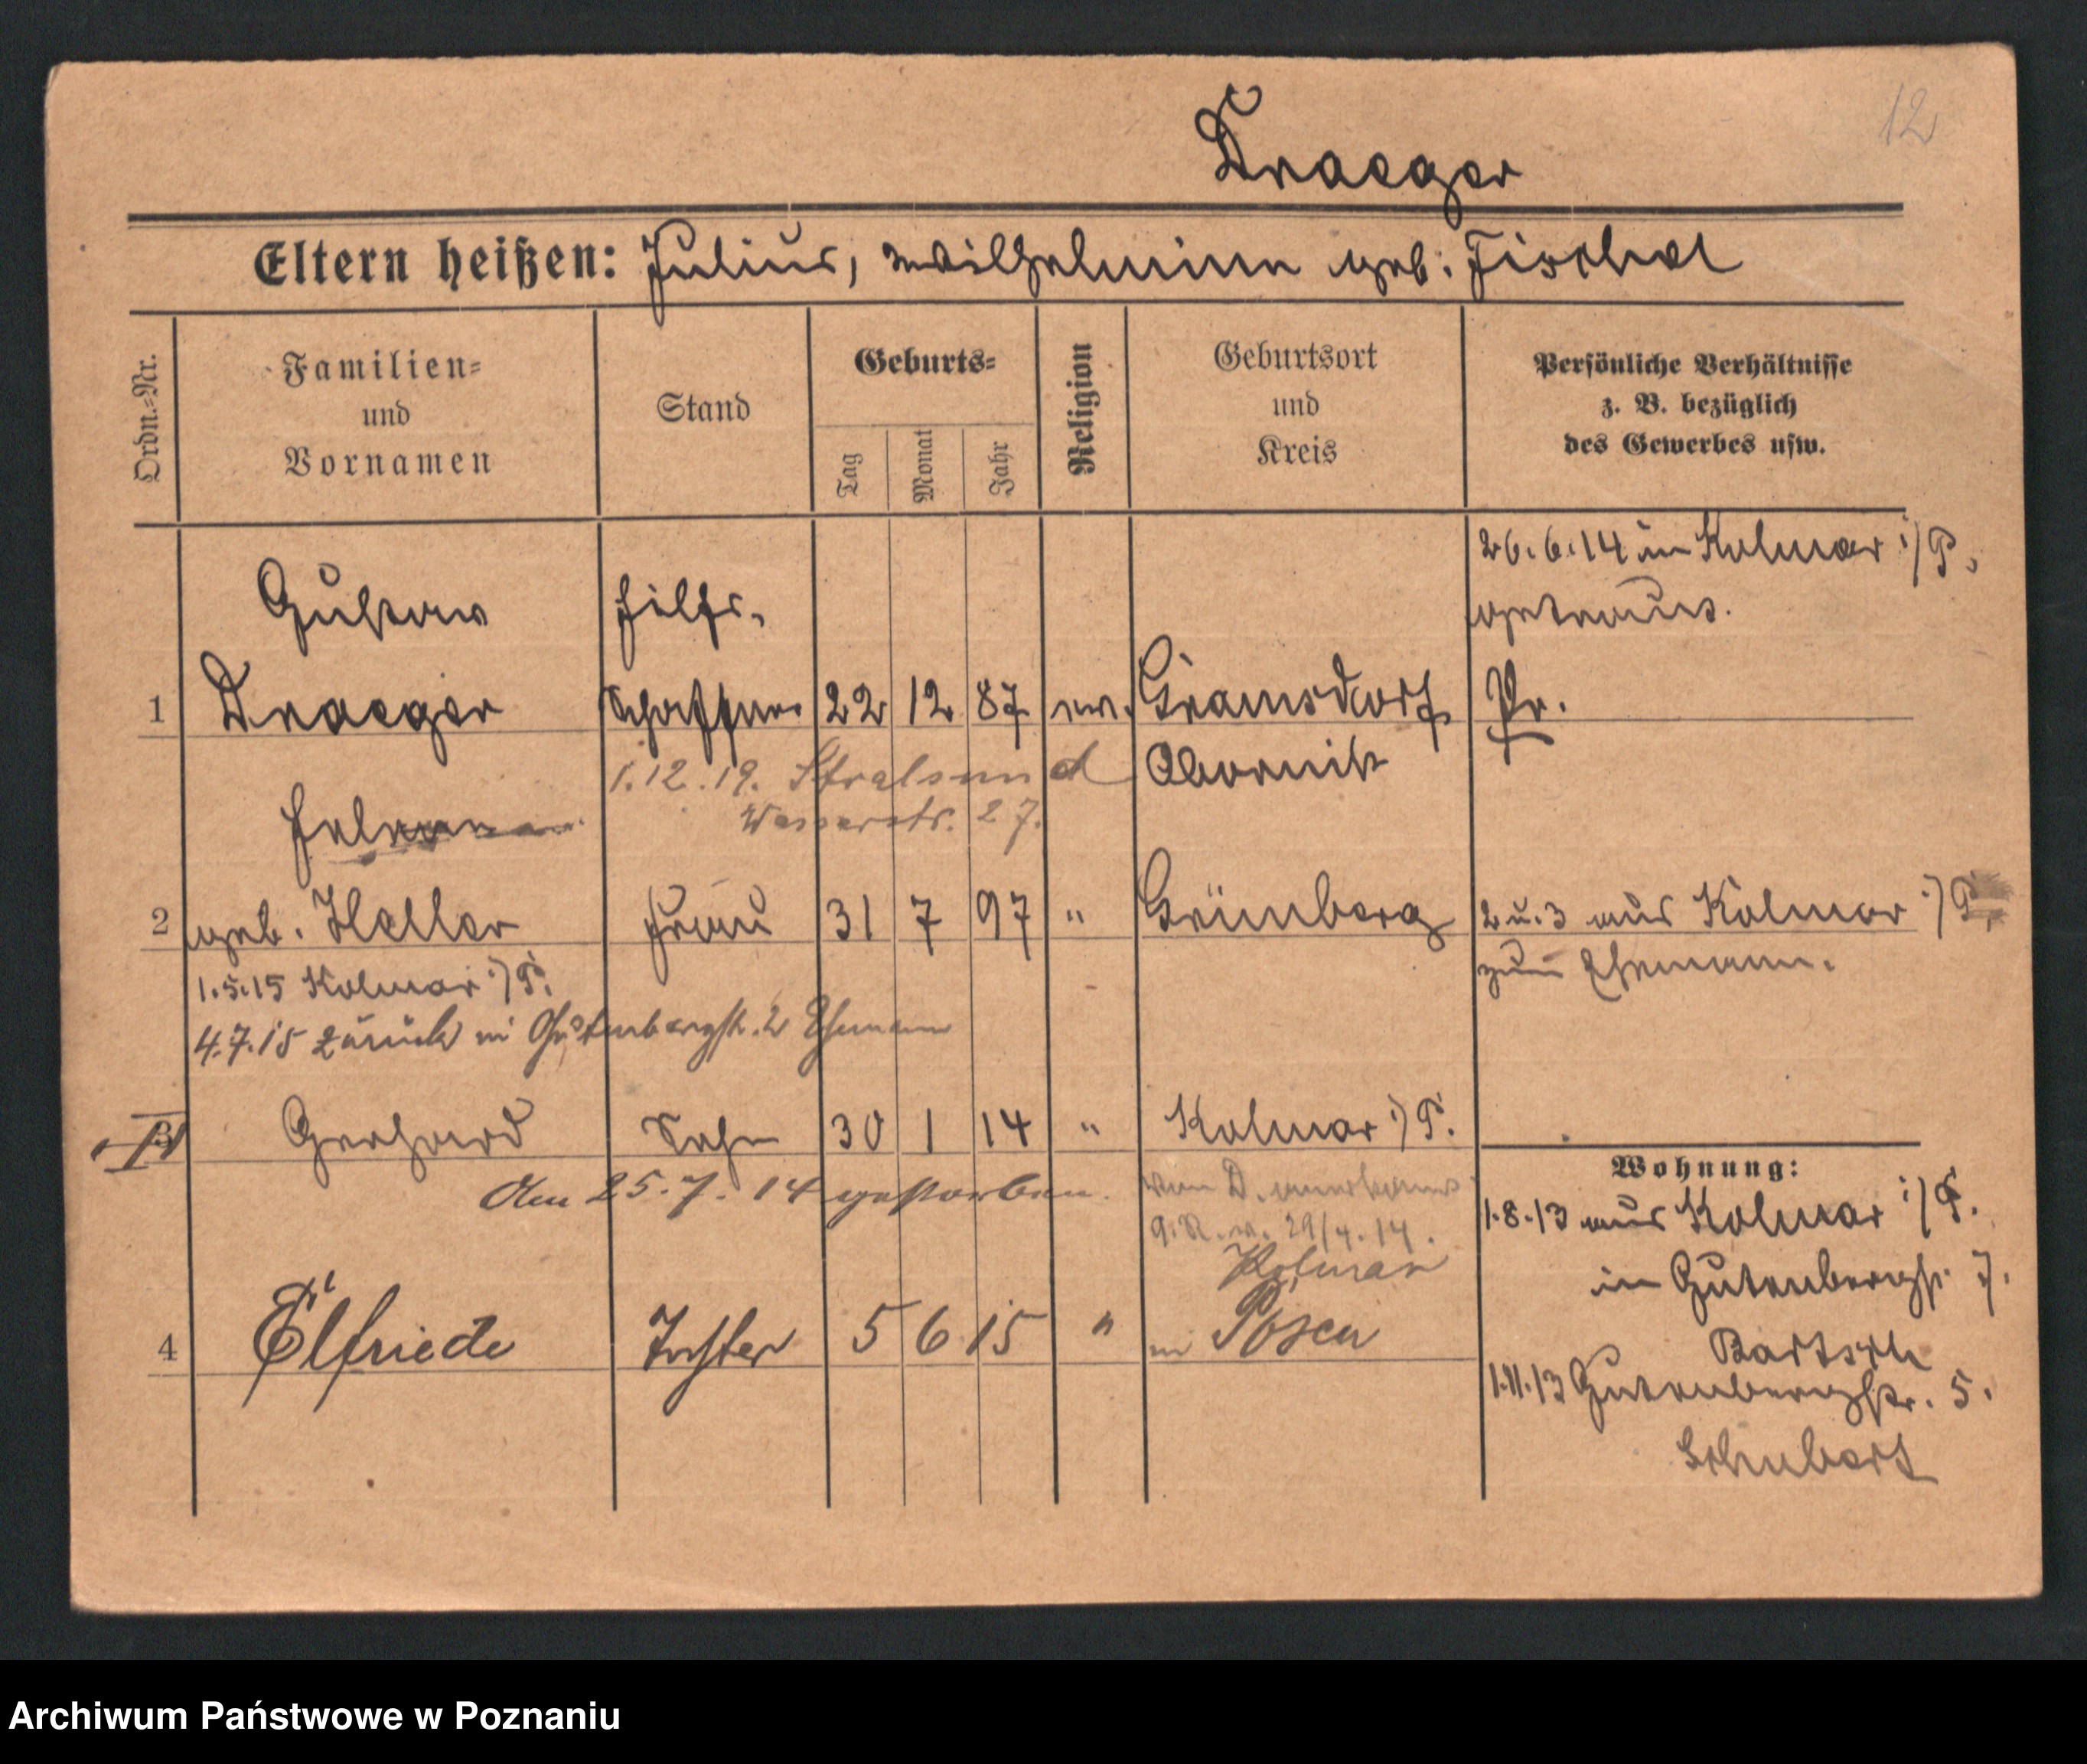 12
Draeger
Eltern heißen: Julius, Wilhelmine geb. Fischel
Ordn.=Nr.
Familien=
und
Vornamen
Stand
Geburts=
Tag
Monat
Jahr
Religion
Geburtsort
und
Kreis
Persönliche Verhältnisse
z. B. bezüglich
des Gewerbes usw.
26.6.14 in Kolmar i/P.
getraut.
Gustav
Hilfs-
1 Draeger schaffner 22 12 87 ev. Gramsdorf Pr.
1.12.19. Stralsund Obornik
Wasserstr. 27.
2 geb. Heller Frau 31 7 97 " Grünberg 2 u. 3 aus Kolmar i/P.
zum Ehemann.
1.5.15 Kolmar i/P.
4.7.15 zurück in Gutenbergstr. 2 Ehemann
3 Gerhard Sohn 30 1 14 " Kolmar i/P.
Am 25.7.14 gestorben. von D. anerkannt
29/4.14.
Wohnung:
1.8.13 aus Kolmar i/P.
in Gutenbergstr. 7.
Bartsch
1.11.13 Gutenbergstr. 5.
Schubert
Kolmar
4 Elfriede Tochter 5 6 15 " in Posen
Archiwum Państwowe w Poznaniu